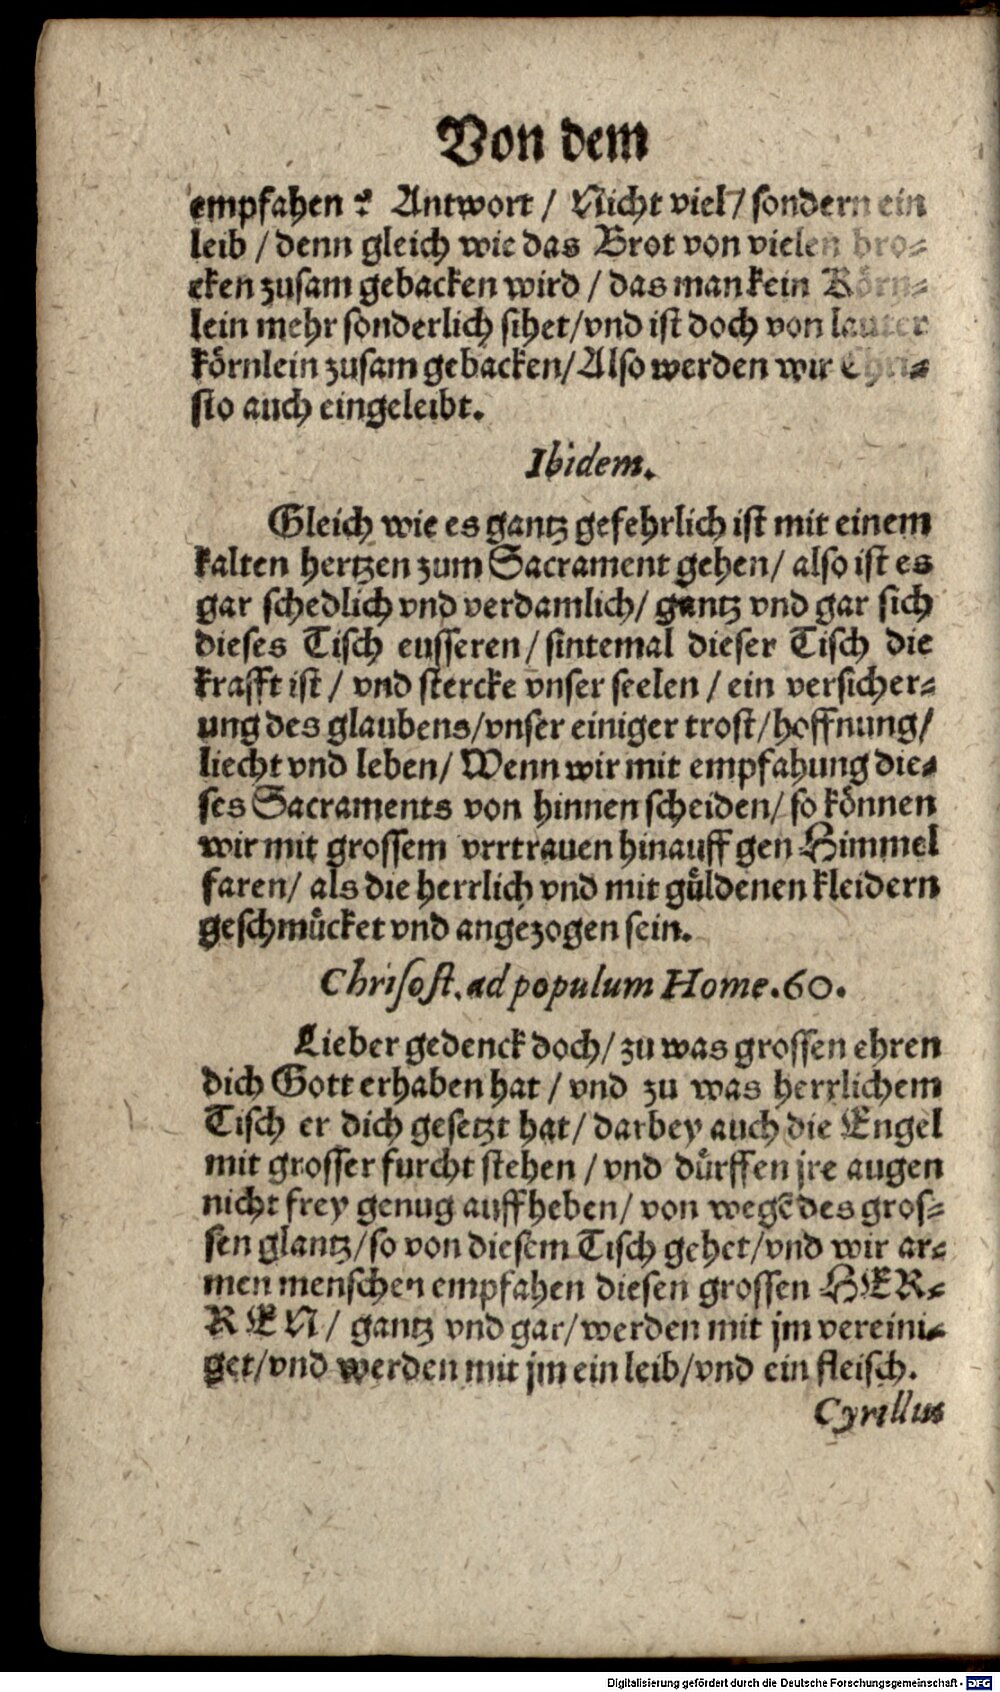 Von dem
empfahen? Antwort / Nicht viel / sondern ein
leib / denn gleich wie das Brot von vielen bro-
cken zusam gebacken wird / das man kein Körn-
lein mehr sonderlich sihet/vnd ist doch von lauter
körnlein zusam gebacken/Also werden wir Chri-
sto auch eingeleibt.
Ibidem.
Gleich wie es gantz gefehrlich ist mit einem
kalten hertzen zum Sacrament gehen/ also ist es
gar schedlich vnd verdamlich/ gantz vnd gar sich
dieses Tisch eusseren/ sintemal dieser Tisch die
krafft ist / vnd stercke vnser seelen / ein versicher-
ung des glaubens/vnser einiger trost/hoffnung/
liecht vnd leben/ Wenn wir mit empfahung die-
ses Sacraments von hinnen scheiden/ so können
wir mit grossem vrrtrauen hinauff gen Himmel
faren/ als die herrlich vnd mit güldenen kleidern
geschmücket vnd angezogen sein.
Chrisost. ad populum Home. 60.
Lieber gedenck doch/ zu was grossen ehren
dich Gott erhaben hat / vnd zu was herrlichem
Tisch er dich gesetzt hat/ darbey auch die Engel
mit grosser furcht stehen / vnd dürffen jre augen
nicht frey genug auffheben/ von wegē des gros-
sen glantz/so von diesem Tisch gehet/vnd wir ar-
men menschen empfahen diesen grossen HER-
REN/ gantz vnd gar/werden mit jm vereini-
get/vnd werden mit jm ein leib/vnd ein fleisch.
Cyrillus
Digitalisierung gefördert durch die Deutsche Forschungsgemeinschaft - DFG